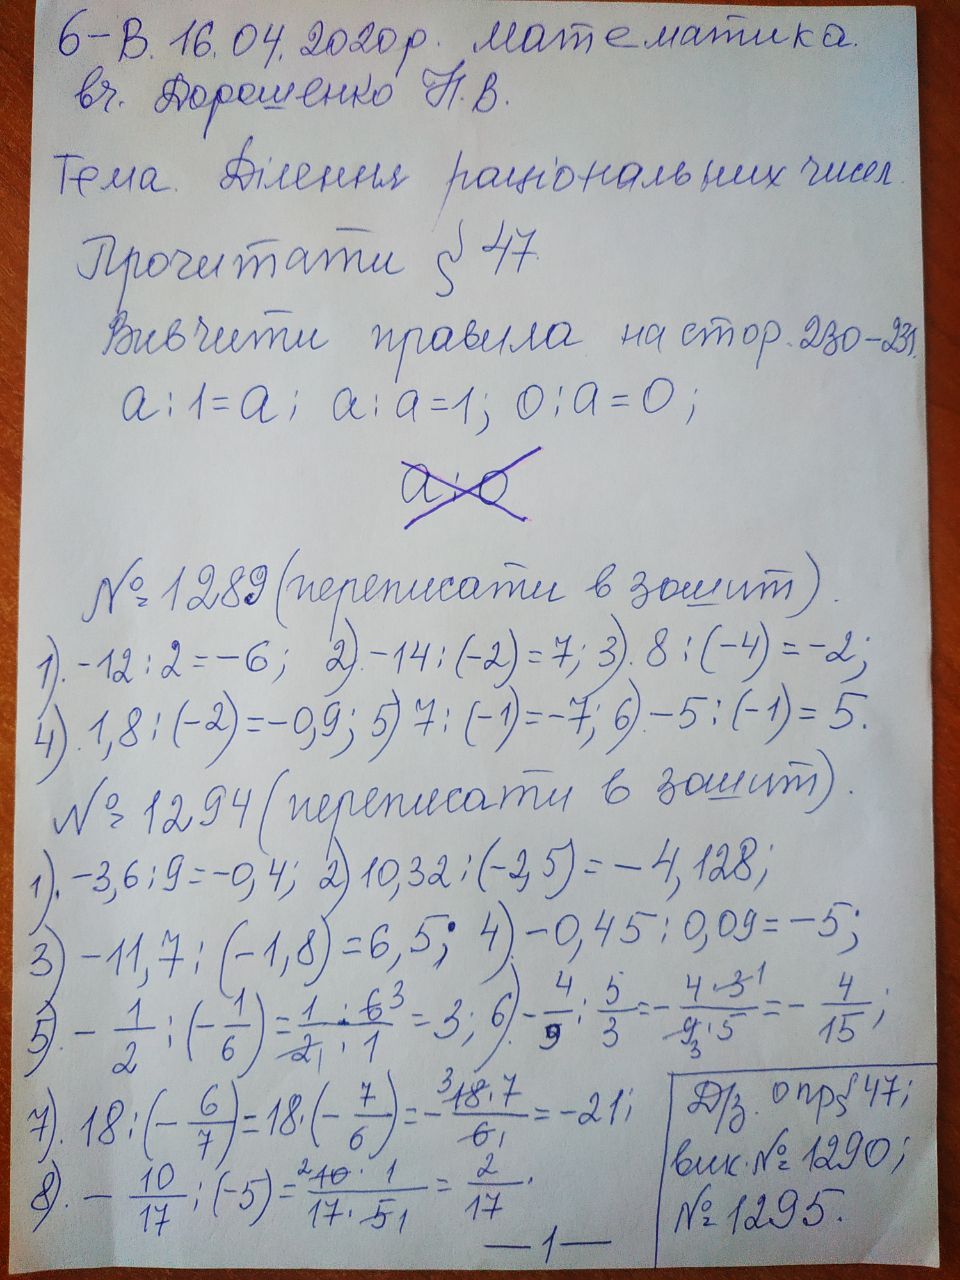 6-В. 16.04.2020р. Математика.
вч. Дорошенко Н.В.
Тема. Ділення раціональних чисел.
Прочитати § 47
Вивчити правила на стор. 230-231.
a:1=a; a:a=1; 0:a=0;
a:0
№ 1289 (переписати в зошит).
1). -12:2=-6; 2). -14:(-2)=7; 3). 8:(-4)=-2;
4). 1,8:(-2)=-0,9; 5) 7:(-1)=-7; 6). -5:(-1)=5.
№ 1294 (переписати в зошит).
1). -3,6:9=-0,4; 2) 10,32:(-2,5)=-4,128;
3) -11,7:(-1,8)=6,5; 4). -0,45:0,09=-5;
5). -1/2:(-1/6)=1·6 3/2 1·1=3; 6). -4/9:5/3=-4·3 1/9 3·5=-4/15;
7). 18:(-6/7)=18·(-7/6)=-3 18·7/6 1=-21;
8). -10/17:(-5)=2 10·1/17·5 1=2/17.
Д/з. опр § 47;
вик. № 1290;
№ 1295.
— 1 —